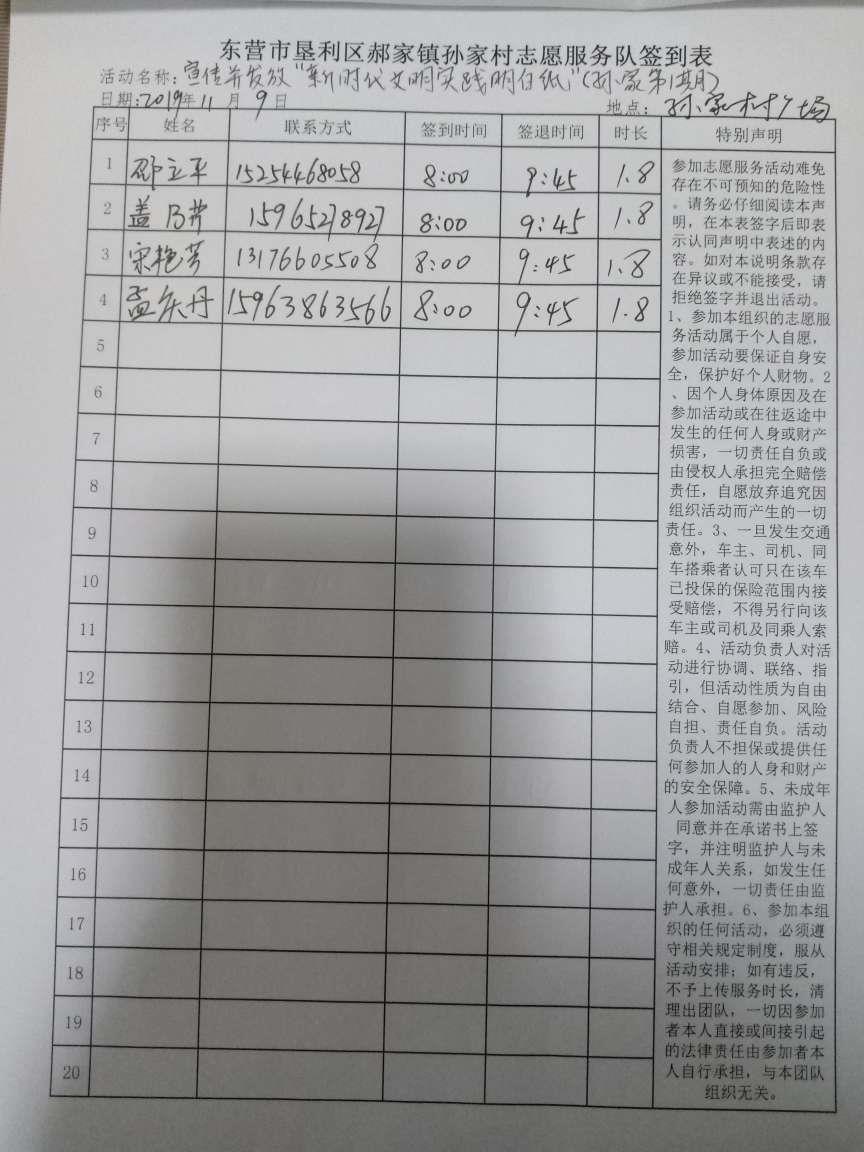 东营市垦利区郝家镇孙家村志愿服务队签到表
活动名称：宣传并发放“新时代文明实践明白纸”（孙家第1期）
日期：2019年11月9日 地点：孙家村广场
序号 姓名 联系方式 签到时间 签退时间 时长 特别声明
1 邵立平 15254468058 8:00 9:45 1.8
2 盖 15965278927 8:00 9:45 1.8
3 宋艳芳 13176605508 8:00 9:45 1.8
4 孟庆丹 15963863566 8:00 9:45 1.8
5
6
7
8
9
10
11
12
13
14
15
16
17
18
19
20
参加志愿服务活动难免
存在不可预知的危险性
。请务必仔细阅读本声
明，在本表签字后即表
示认同声明中表述的内
容。如对本说明条款存
在异议或不能接受，请
拒绝签字并退出活动。
1、参加本组织的志愿服
务活动属于个人自愿，
参加活动要保证自身安
全，保护好个人财物。2
、因个人身体原因及在
参加活动或在往返途中
发生的任何人身或财产
损害，一切责任自负或
由侵权人承担完全赔偿
责任，自愿放弃追究因
组织活动而产生的一切
责任。3、一旦发生交通
意外，车主、司机、同
车搭乘者认可只在该车
已投保的保险范围内接
受赔偿，不得另行向该
车主或司机及同乘人索
赔。4、活动负责人对活
动进行协调、联络、指
引，但活动性质为自由
结合、自愿参加、风险
自担、责任自负。活动
负责人不担保或提供任
何参加人的人身和财产
的安全保障。5、未成年
人参加活动需由监护人
同意并在承诺书上签
字，并注明监护人与未
成年人关系，如发生任
何意外，一切责任由监
护人承担。6、参加本组
织的任何活动，必须遵
守相关规定制度，服从
活动安排；如有违反，
不予上传服务时长，清
理出团队，一切因参加
者本人直接或间接引起
的法律责任由参加者本
人自行承担，与本团队
组织无关。